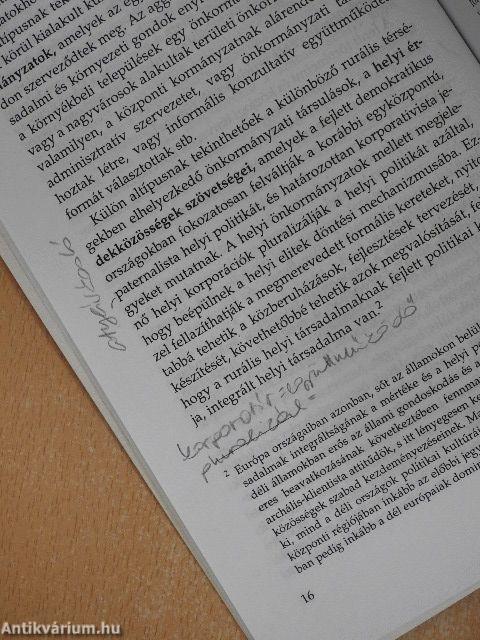 körül kialakult
típusnak tekinthető
amelyek az egy
nyzatok, amelyek az
don szerveződtek meg. Az agg
sadalmi és környezeti gondok eny
a környékbeli települések egy önkorm
vagy a nagyvárosok alakultak területi önkor
valamilyen, a központi kormányzatnak alárende
adminisztratív szervezetet, vagy önkormányzati tá
hoztak létre, vagy informális konzultatív együttműködé
formát választottak stb.
Külön altípusnak tekinthetőek a különböző rurális térsé-
gekben elhelyezkedő önkormányzati társulások, a helyi ér-
dekközösségek szövetségei, amelyek a fejlett demokratikus
országokban fokozatosan felváltják a korábbi egyközpontú,
paternalista helyi politikát, és határozottan korporativista je-
gyeket mutatnak. A helyi önkormányzatok mellett megjele-
nő helyi korporációk pluralizálják a helyi politikát azáltal,
hogy beépülnek a helyi elitek döntési mechanizmusába. Ez-
zel fellazíthatják a megmerevedett formális kereteket, nyito
tabbá tehetik a közberuházások, fejlesztések tervezését,
készítését, követhetőbbé tehetik azok megvalósítását, fe
hogy a rurális helyi társadalmaknak fejlett politikai k
ja, integrált helyi társadalma van.²
korporatív = együttműködő
² Európa országaiban azonban, sőt az államokon belül
sadalmak integráltságának a mértéke és a helyi po
déli államokban erős az állami gondoskodás és a
eres beavatkozásának következtében fennma
archális-klientista attitűdök, s itt lényegesen ke
közösségek szabad kezdeményezéseinek. Ma
ki, mind a déli országok politikai kultúrá
központi régiójában inkább az előbbi jegy
ban pedig inkább a dél európaiak domin
16
Antikvárium.hu